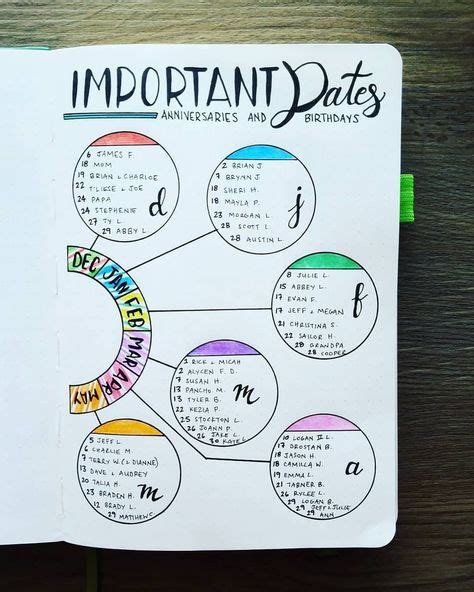 IMPORTANT Dates
ANNIVERSARIES AND BIRTHDAYS
6 JAMES F.
18 MOM
19 BRIAN & CHARLOE
22 T'LIESE & JOE
24 PAPA
24 STEPHENIE
27 TY L.
29 ABBY L.
d
2 BRIAN J.
7 BRYNN J.
18 SHERI H.
18 MAYLA P.
23 MORGAN L.
28 SCOTT L.
28 AUSTIN L.
j
DEC
JAN
FEB
MAR
APR
MAY
8 JULIE L.
15 ABBEY L.
17 EVAN F.
17 JEFF & MEGAN
21 CHRISTINA S.
22 SAILOR H.
28 GRANDPA
28 COOPER
f
1 RICK & MICAH
2 ALYCEN F. D.
7 SUSAN H.
13 PANCHO M.
13 TYLER B.
22 KEZIA P.
25 STOCKTON L.
26 JOANN P.
26 JAKE L.
30 KATE L.
m
5 JEFF L.
6 CHARLIE M.
7 TERRY W. (& DIANNE)
13 DAVE & AUDREY
20 TALIA H.
23 BRADEN H.
12 BRADY L.
29 MATTHEW C.
m
10 LOGAN II L.
17 DROSTAN B.
18 JASON H.
18 CAMILLA W.
19 EMMA L.
21 TARNER B.
26 RYLEE L.
29 LOGAN B.
29 JEFF & JULIE
29 ANN
a